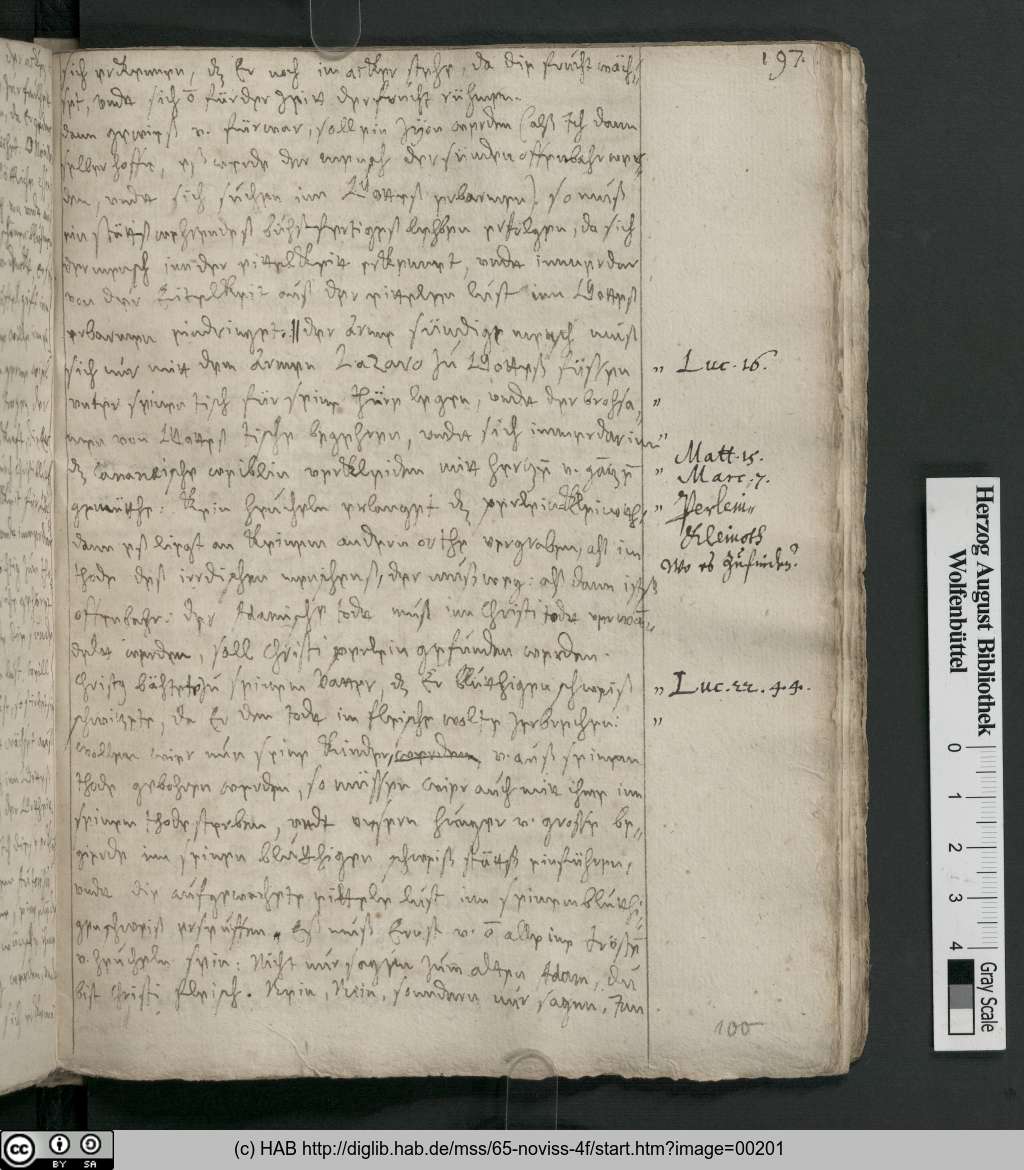 197.
sich erkennen, dz Er noch im acker stehe, da die frucht wäch„
set, vndt sich ō für der Zeitt der frucht rühmen.
dann gewieß v. fürwar, soll ein Zion werden (alß Ich dann
selber hoffe, eß werde der mensch der sünden offenbahr wer„
den, vndt sich süchen inn Gottes erbarmen) so muß
ein stättß wehrendeß büchßfertigeß lehben erfolgen, da sich
der mensch inn der eittelkeitt erkennet, vndt immerdar
von der Eitelkeit auß der eittelen lust inn Gotteß
erbarmen eindringet. || der ärme sündige mensch muß
sich nur mitt dem ärmen Lazaro zu Gotteß füssen
vnter seinen tisch für seine thüre legen, vndt der brohsa„
men von Gotteß tische begehren, vndt sich immerdar inn
dz Cananeische weiblin verkleiden mitt hertzē v. gātzē
gemüthe: Kein heucheln erlanget dz perlein
dann eß liegt an keinem andern orthe vergraben, alß im
thode deß irrdischen menschenß, der muß weg: alß dann ists
offenbahr: der Adamische todt muß inn Christi todt verwā„
delt werden, soll Christi perlein gefunden werden.
Christꝰ bähtete zu seinem Vatter, dz Er blüthigen schweiß
schwitzete, da Er den todt im fleische wolte zerbrechen:
wollen wier nun seine Kinder, werden v. auß seinem
thode gebohren werden, so müssen wier auch mit ihme inn
seinen thode sterben, vndt vnsern hunger v. grosse be„
gierde inn seinen blüthigen schweiß stättß einführen,
vndt die aufgewachete eittele lust inn seinem blüth„
gen schweiß ersäuffen. Eß muß Ernst v. ō alleine trösten
v. heucheln sein: Nicht nur sagen zum alten Adam, du
bist Christi fleisch. Nein, Nein, sondern nur sagen, Inn
„ Luc. 16.
Matt. 15.
Marc. 7.
Perlein„
Kleinoth
Wo es zufinden?
„ Luc. 22. 44.
100
Herzog August Bibliothek
Wolfenbüttel
0 1 2 3 4
Gray Scale
cc BY SA
(c) HAB http://diglib.hab.de/mss/65-noviss-4f/start.htm?image=00201